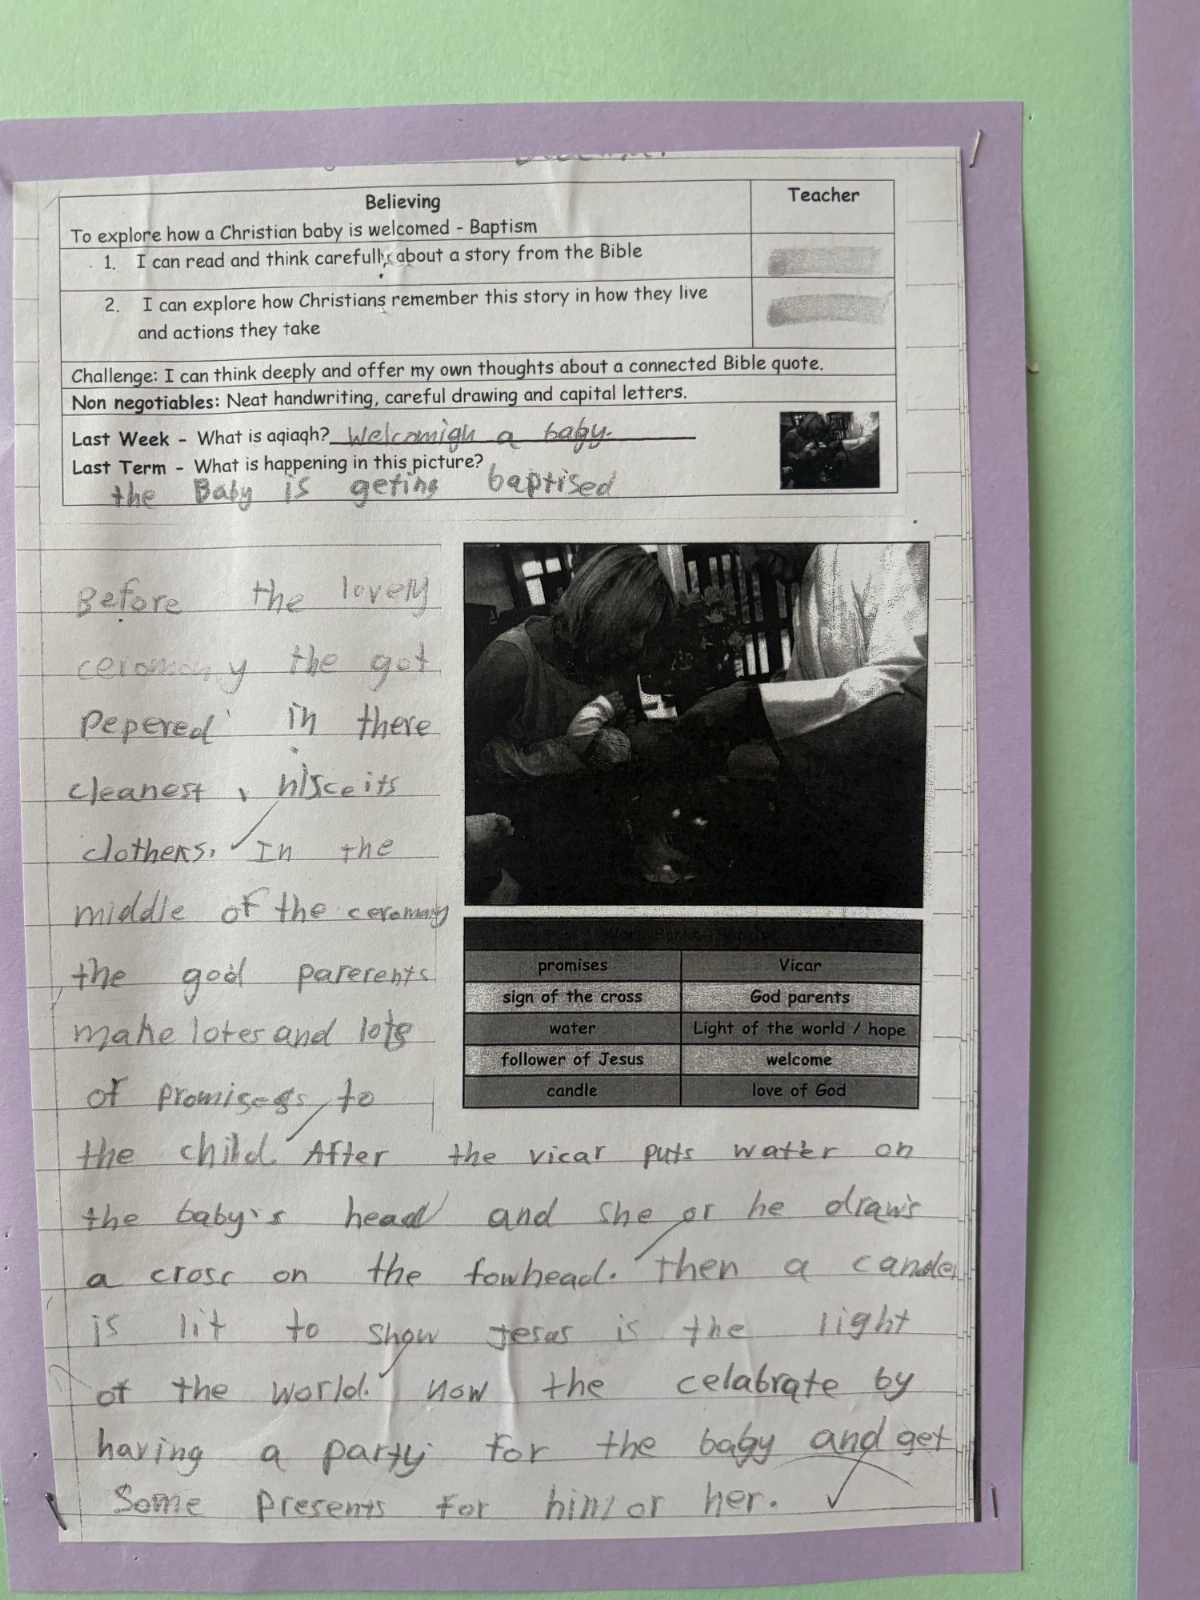 Believing
Teacher
To explore how a Christian baby is welcomed - Baptism
1. I can read and think carefully about a story from the Bible
2. I can explore how Christians remember this story in how they live
and actions they take
Challenge: I can think deeply and offer my own thoughts about a connected Bible quote.
Non negotiables: Neat handwriting, careful drawing and capital letters.
Last Week - What is aqiaqh? Welcomigh a baby.
Last Term - What is happening in this picture?
the Baby is geting baptised
Before the lovely
ceromany the got
Pepered in there
cleanest, nisceits
clothers. In the
middle of the ceromany
the god parerents
make lotes and lots
of promises to
the child. After the vicar puts water on
the baby's head and she or he draws
a cross on the fowhead. Then a candle
is lit to show Jesus is the light
of the world. Now the celabrate by
having a party for the baby and get
Some Presents for him or her.
promises Vicar
sign of the cross God parents
water Light of the world / hope
follower of Jesus welcome
candle love of God